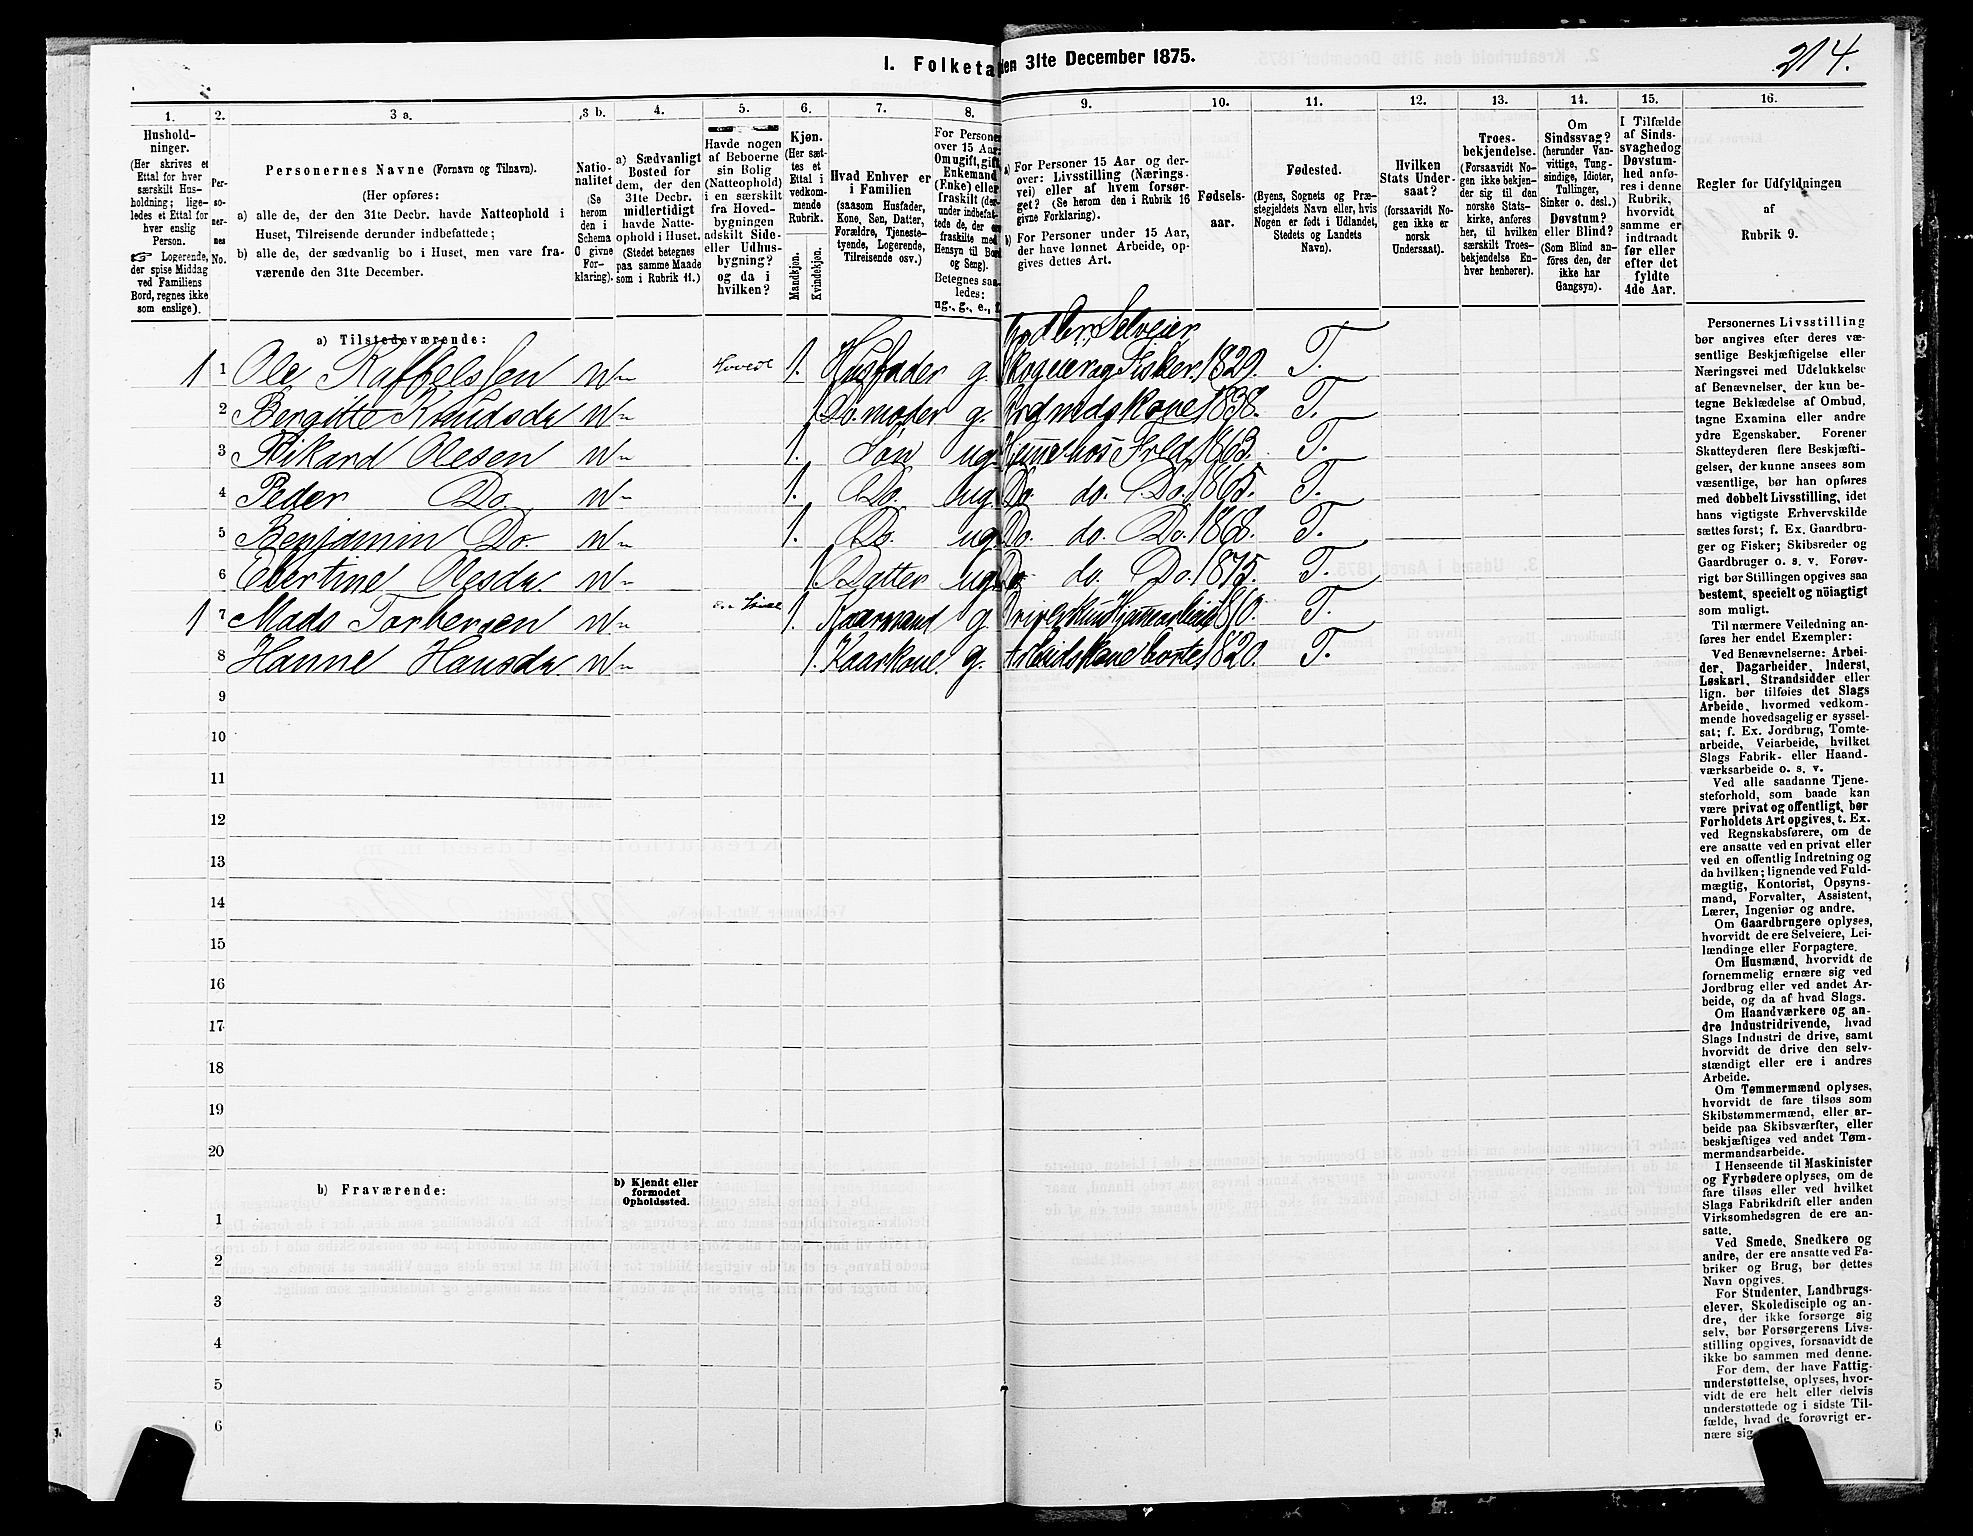 I. Folketa
den 31te December 1875.
214.
1.
2.
3 a.
3 b.
4.
5.
6.
7.
8.
9.
10.
11.
12.
13.
14.
15.
16.
Hushold-
ninger.
(Her skrives et
Ettal for hver
særskilt Hus-
holdning; lige-
ledes et Ettal for
hver enslig
Person.
☞ Logerende,
der spise Middag
ved Familiens
Bord, regnes ikke
som enslige).
Per-
so-
ner-
nes
No.
Personernes Navne (Fornavn og Tilnavn).
(Her opføres:
a) alle de, der den 31te Decbr. havde Natteophold i
Huset, Tilreisende derunder indbefattede;
b) alle de, der sædvanlig bo i Huset, men vare fra-
værende den 31te December.
Natio-
nalitet
(Se
herom
den i
Schema
O givne
For-
klaring).
a) Sædvanligt
Bosted for
dem, der den
31te Decbr.
midlertidigt
havde Natte-
ophold i Huset.
(Stedet betegnes
paa samme Maade
som i Rubrik 11.)
Havde nogen
af Beboerne
sin Bolig
(Natteophold)
i en særskilt
fra Hoved-
bygningen
adskilt Side-
eller Udhus-
bygning?
og da i
hvilken?
Kjøn.
(Her sæt-
tes et
Ettal i
vedkom-
mende
Rubrik.
Mandkjøn.
Kvindekjøn.
Hvad Enhver er
i Familien
(saasom Husfader,
Kone, Søn, Datter,
Forældre, Tjeneste-
tyende, Logerende,
Tilreisende osv.)
For Personer
over 15 Aar:
Om ugift, gift,
Enkemand
(Enke) eller
fraskilt (der-
under indbefat-
tede de, der ere
fraskilte med
Hensyn til Bord
og Seng).
Betegnes saa-
ledes:
ug., g., e., f.
a) For Personer 15 Aar og der-
over: Livsstilling (Nærings-
vei) eller af hvem forsør-
get? (Se herom den i Rubrik 16
givne Forklaring).
b) For Personer under 15 Aar,
der have lønnet Arbeide, op-
gives dettes Art.
Fødsels-
aar.
Fødested.
(Byens, Sognets og Præ-
stegjeldets Navn eller, hvis
Nogen er født i Udlandet,
Stedets og Landets
Navn).
Hvilken
Stats Under-
saat?
(forsaavidt No-
gen ikke er
norsk
Undersaat).
Troes-
bekjendelse.
(Forsaavidt No-
gen ikke bekjen-
der sig til den
norske Stats-
kirke, anføres
her, til hvilken
særskilt Troes-
bekjendelse En-
hver henhører).
Om
Sindssvag?
(herunder Van-
vittige, Tung-
sindige, Idioter,
Tullinger,
Sinker o. desl.)
Døvstum?
eller Blind?
(Som Blind an-
føres den, der
ikke har
Gangsyn).
I Tilfælde
af Sinds-
svaghed og
Døvstum-
hed anfø-
res i denne
Rubrik,
hvorvidt
samme er
indtraadt
før eller
efter det
fyldte
4de Aar.
Regler for Udfyldningen
af
Rubrik 9.
a) Tilstedeværende:
Selveier
1 1 Ole Raffelsen N Hovede 1. Husfader g. og Fisker. 1829. T.
2 Bergitte Knudsda N 1 Do. moder g. kone 1838. T.
3 Rikard Olesen N 1. Søn ug. Hjemme hos Frld. 1863. T.
4 Peder Do. N 1. Do. ug. Do. do. Do. 1865. T.
5 Benjamin Do. N 1. Do. ug. Do. do. Do. 1868. T.
6 Ebertine Olesda N 1. Datter ug. Do. do. Do. 1875. T.
1 7 Mads Torbersen N 1. Kaarmand g. 1810. T.
8 Hanne Hansda. N 1. Kaarkone. g. Arbeidskone borte 1820. T.
9
10
11
12
13
14
15
16
17
18
19
20
b) Fraværende:
b) Kjendt eller
formodet
Opholdssted.
1
2
3
4
5
6
Personernes Livsstilling
bør angives efter deres væ-
sentlige Beskjæftigelse eller
Næringsvei med Udelukkelse
af Benævnelser, der kun be-
tegne Beklædelse af Ombud,
tagne Examina eller andre
ydre Egenskaber. Forener
Skatteyderen flere Beskjæfti-
gelser, der kunne ansees som
væsentlige, bør han opføres
med dobbelt Livsstilling, idet
hans vigtigste Erhvervskilde
sættes først; f. Ex. Gaardbru-
ger og Fisker; Skibsreder og
Gaardbruger o. s. v. Forøv-
rigt bør Stillingen opgives saa
bestemt, specielt og nöiagtigt
som muligt.
Til nærmere Veiledning an-
føres her endel Exempler:
Ved Benævnelserne: Arbei-
der, Dagarbeider, Inderst,
Løskarl, Strandsidder eller
lign. bør tilføies det Slags
Arbeide, hvormed vedkom-
mende hovedsagelig er syssel-
sat; f. Ex. Jordbrug, Tomte-
arbeide, Veiarbeide, hvilket
Slags Fabrik- eller Haand-
værksarbeide o. s. v.
Ved alle saadanne Tjene-
steforhold, som baade kan
være privat og offentligt, bør
Forholdets Art opgives, t. Ex.
ved Regnskabsførere, om de
ere ansatte ved en privat eller
ved en offentlig Indretning og
da hvilken; lignende ved Fuld-
mægtig, Kontorist, Opsyns-
mand, Forvalter, Assistent,
Lærer, Ingeniør og andre.
Om Gaardbrugere oplyses,
hvorvidt de ere Selveiere, Lei-
lændinge eller Forpagtere.
Om Husmænd, hvorvidt de
fornemmelig ernære sig ved
Jordbrug eller ved andet Ar-
beide, og da af hvad Slags.
Om Haandværkere og an-
dre Industridrivende, hvad
Slags Industri de drive, samt
hvorvidt de drive den selv-
stændigt eller ere i andres
Arbeide.
Om Tømmermænd oplyses,
hvorvidt de fare tilsøs som
Skibstømmermænd, eller ar-
beide paa Skibsværfter, eller
beskjæftiges ved andet Tøm-
mermandsarbeide.
I Henseende til Maskinister
og Fyrbødere oplyses, om de
fare tilsøs eller ved hvilket
Slags Fabrikdrift eller anden
Virksomhedsgren de ere an-
satte.
Ved Smede, Snedkere og
andre, der ere ansatte ved Fa-
briker og Brug, bør dettes
Navn opgives.
For Studenter, Landbrugs-
elever, Skoledisciple og an-
dre, der ikke forsørge sig
selv, bør Forsørgerens Livs-
stilling opgives, forsaavidt de
ikke bo sammen med denne.
For dem, der have Fattig-
understøttelse, oplyses, hvor-
vidt de ere helt eller delvis
understøttede og i sidste Til-
fælde, hvad de forøvrigt er-
nære sig